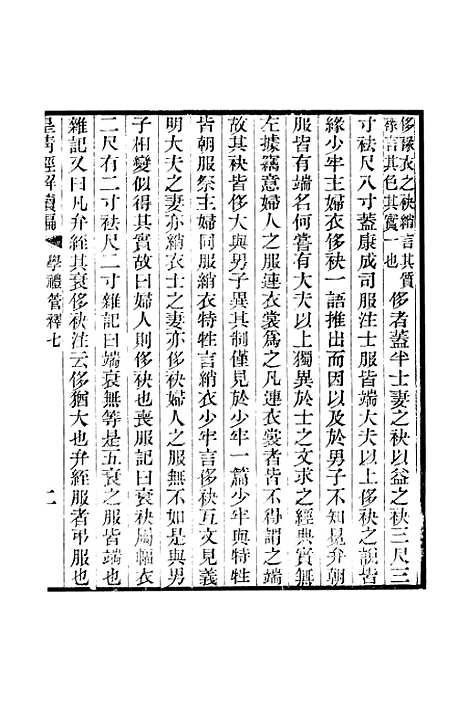 侈祿衣之袂綃言其質
祿言其色其實一也
侈者蓋半士妻之袂以益之袂三尺三
寸袪尺八寸蓋康成司服注士服皆端大夫以上侈袂之說皆
緣少牢主婦衣侈袂一語推出而因以及於男子不知冕弁朝
服皆有端名何嘗有大夫以上獨異於士之文求之經典實無
左據竊意婦人之服連衣裳爲之凡連衣裳者皆不得謂之端
故其袂皆侈大與男子異其制僅見於少牢一篇少牢與特牲
皆朝服祭主婦同服綃衣特牲言綃衣少牢言侈袂互文見義
明大夫之妻亦綃衣士之妻亦侈袂婦人之服無不如是與男
子相變似得其實故曰婦人則侈袂也喪服記曰衰袂屬幅衣
二尺有二寸袪尺二寸雜記曰端衰無等是五衰之服皆端也
雜記又曰凡弁絰其衰侈袂注云侈猶大也弁絰服者弔服也
皇清經解續編
學禮管釋七
二